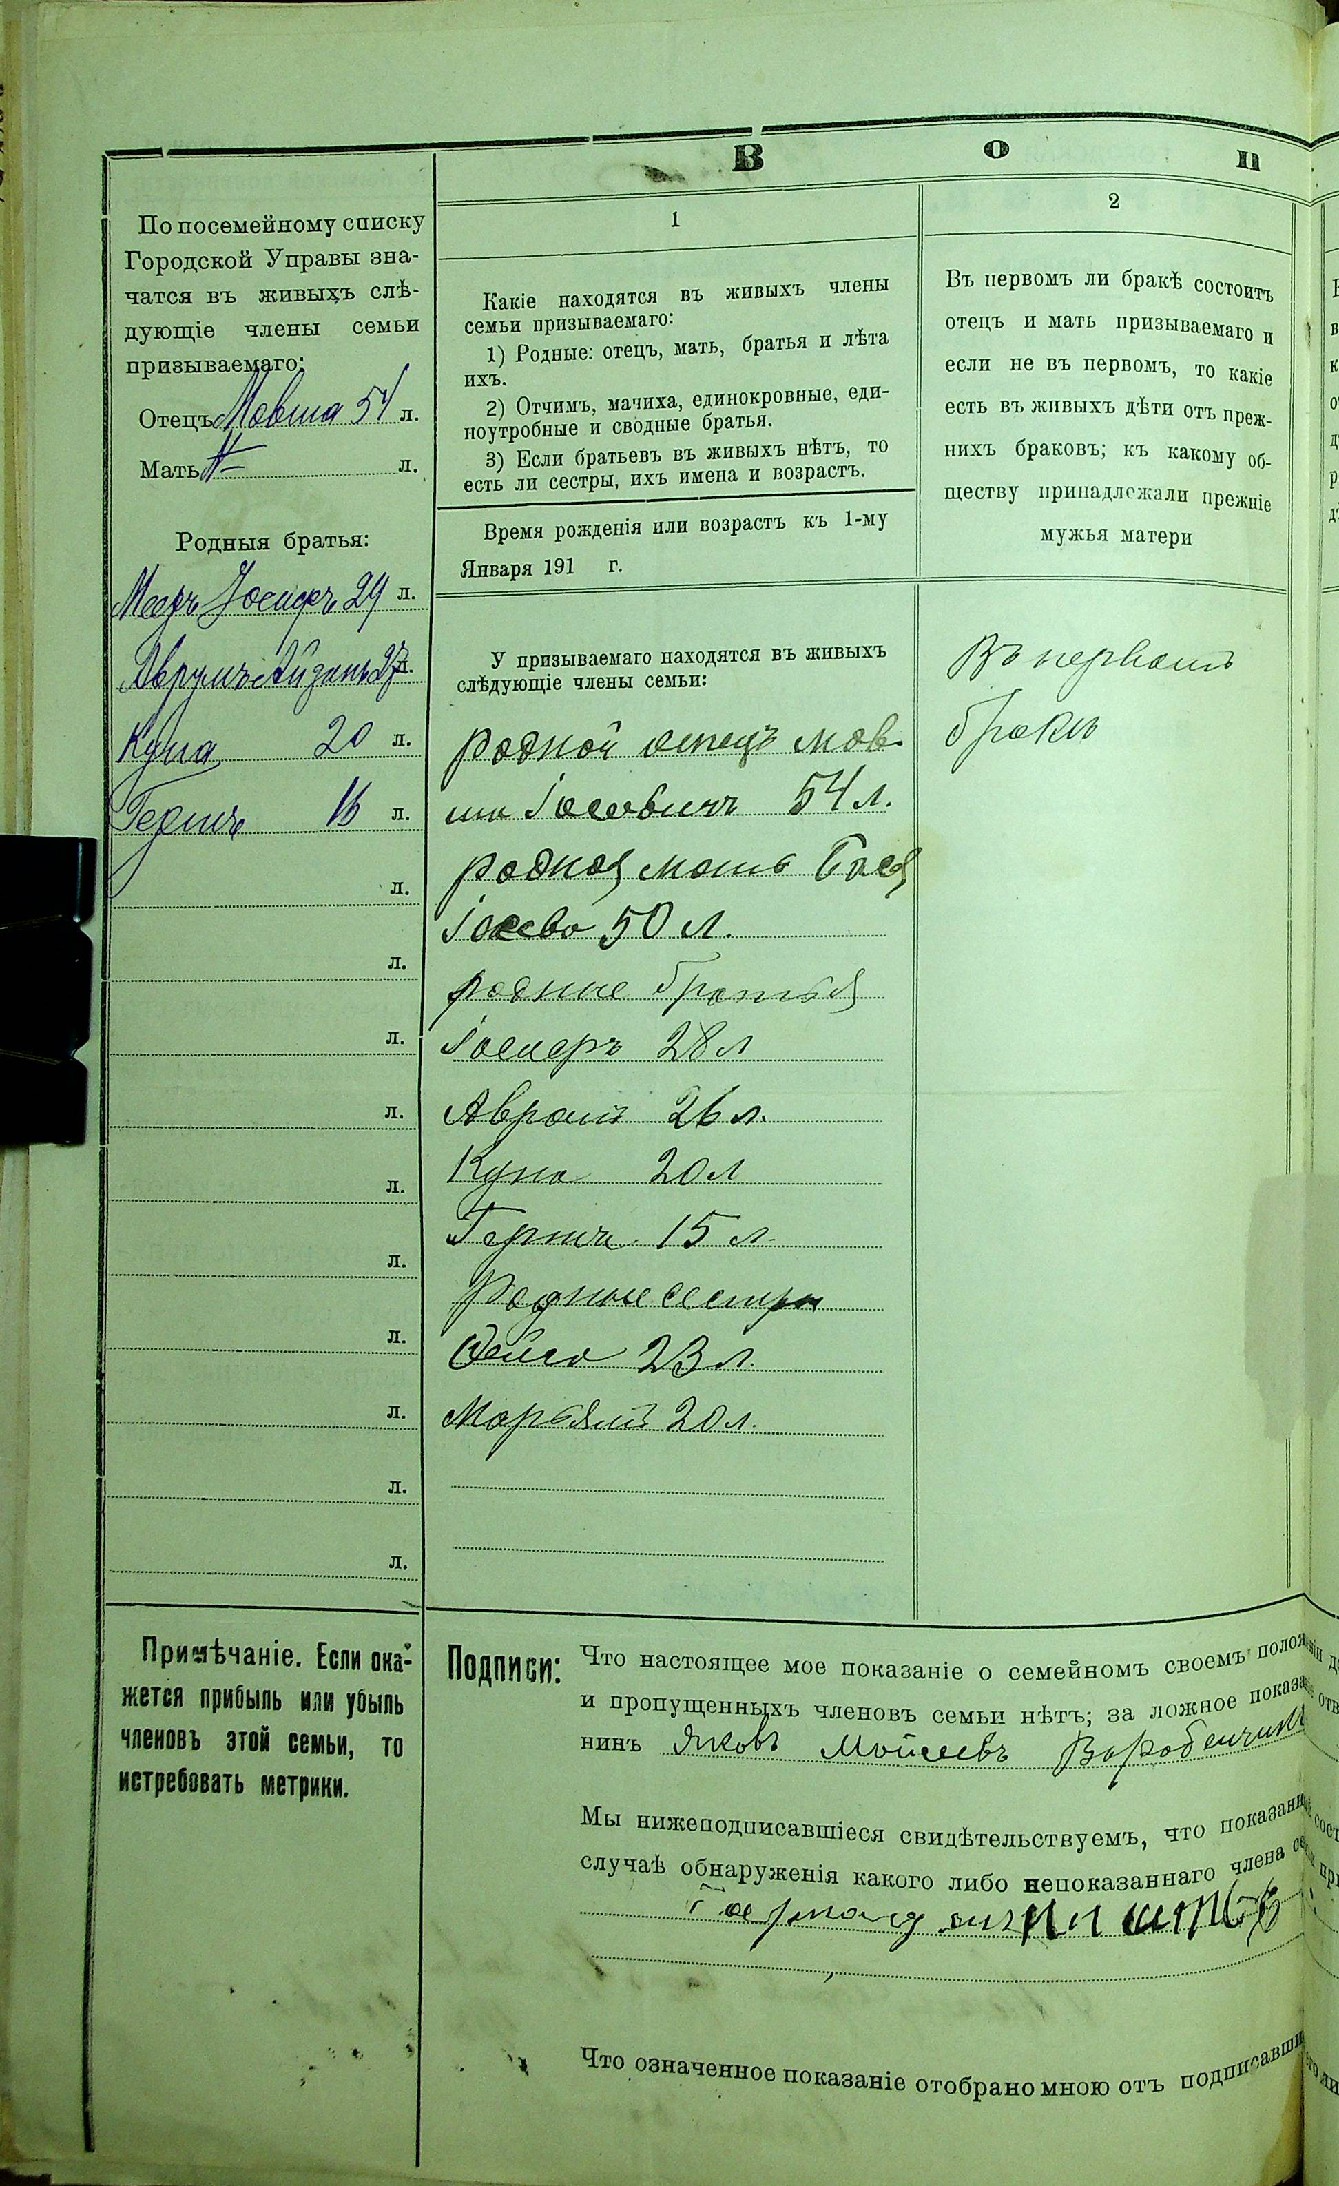 В о п
По посемейному списку
Городской Управы зна-
чатся въ живыхъ слѣ-
дующіе члены семьи
призываемаго:
Отецъ Мовша 54 л.
Мать л.
Родныя братья:
Меер Іосифъ 29 л.
Аврумъ Айзикъ 27 л.
Куна 20 л.
Гершъ 16 л.
л.
л.
л.
л.
л.
л.
л.
л.
л.
л.
Примѣчаніе. Если ока-
жется прибыль или убыль
членовъ этой семьи, то
истребовать метрики.
1
Какіе находятся въ живыхъ члены
семьи призываемаго:
1) Родные: отецъ, мать, братья и лѣта
ихъ.
2) Отчимъ, мачиха, единокровные, еди-
ноутробные и сводные братья.
3) Если братьевъ въ живыхъ нѣтъ, то
есть ли сестры, ихъ имена и возрастъ.
Время рожденія или возрастъ къ 1-му
Января 191 г.
У призываемаго находятся въ живыхъ
слѣдующіе члены семьи:
родной отецъ Мов-
ша Іосевичъ 54 л.
родная мать Бася
Іосева 50 л.
родные братья
Іосифъ 28 л
Аврамъ 26 л.
Куна 20 л
Гершъ 15 л
Родные сестры
Фейга 23 л.
Марьямъ 20 л.
2
Въ первомъ ли бракѣ состоитъ
отецъ и мать призываемаго и
если не въ первомъ, то какіе
есть въ живыхъ дѣти отъ преж-
нихъ браковъ; къ какому об-
ществу принадлежали прежніе
мужья матери
Въ первомъ
бракѣ
Подписи: Что настоящее мое показаніе о семейномъ своемъ
и пропущенныхъ членовъ семьи нѣтъ; за ложное
нинъ Яковъ Мойсеевъ Воробейчикъ
Мы нижеподписавшіеся свидѣтельствуемъ, что
случаѣ обнаруженія какого либо непоказаннаго члена
Что означенное показаніе отобрано мною отъ